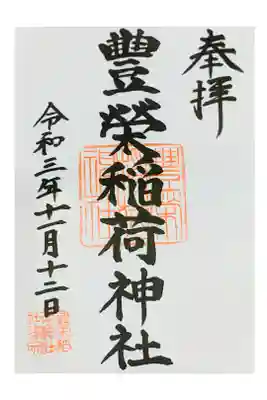 奉拝
豐榮稲荷神社
令和三年十一月十二日